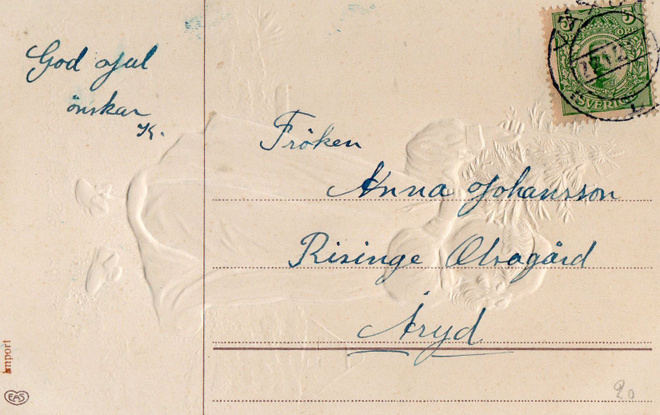 God Jul
önskar
K.
5
ÖRE
SVERIGE
Fröken
Anna Johansson
Risinge
Åryd
Import
EAS
20